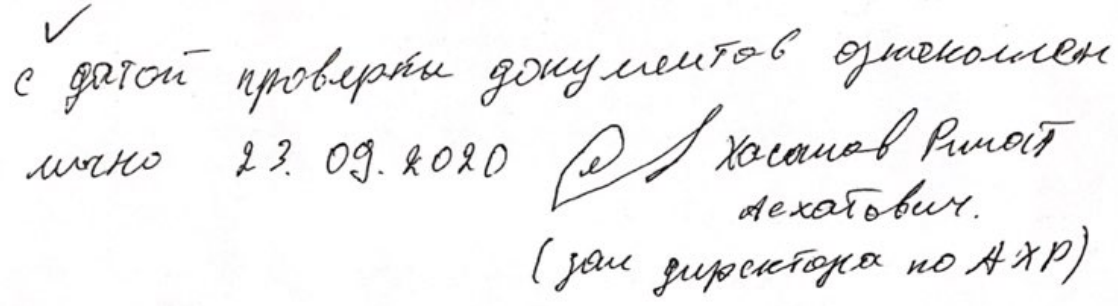 с датой проверки документов ознакомлен
лично 23.09.2020 Хасанов Ринат
Асхатович.
(зам директора по АХР)